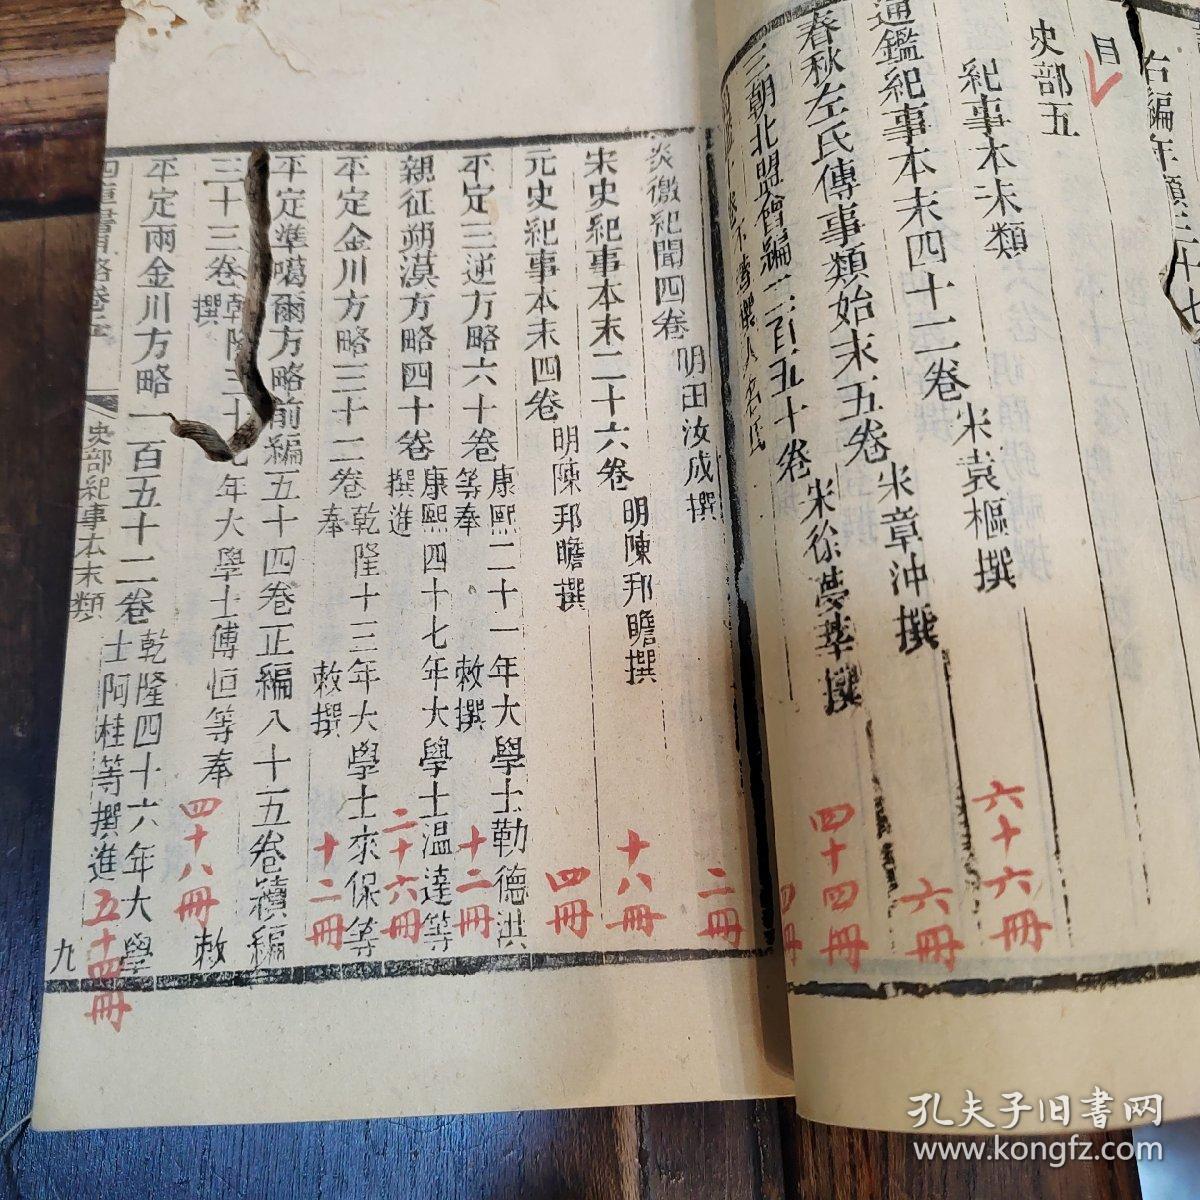 右編年類三十七
目
史部五
紀事本末類
通鑑紀事本末四十二卷 宋袁樞撰 六十六冊
春秋左氏傳事類始末五卷 宋章沖撰 六冊
三朝北盟會編二百五十卷 宋徐夢莘撰 四十四冊
不著撰人名氏
炎徼紀聞四卷 明田汝成撰 二冊
宋史紀事本末二十六卷 明陳邦瞻撰 十八冊
元史紀事本末四卷 明陳邦瞻撰 四冊
平定三逆方略六十卷 康熙二十一年大學士勒德洪等奉 敕撰 十二冊
親征朔漠方略四十卷 康熙四十七年大學士溫達等撰進 二十六冊
平定金川方略三十二卷 乾隆十三年大學士來保等奉 敕撰 十二冊
平定準噶爾方略前編五十四卷正編八十五卷續編
三十三卷 乾隆三十七年大學士傅恒等奉 敕撰 四十八冊
平定兩金川方略一百五十二卷 乾隆四十六年大學士阿桂等撰進 五十四冊
史部紀事本末類
九
孔夫子旧書网
www.kongfz.com